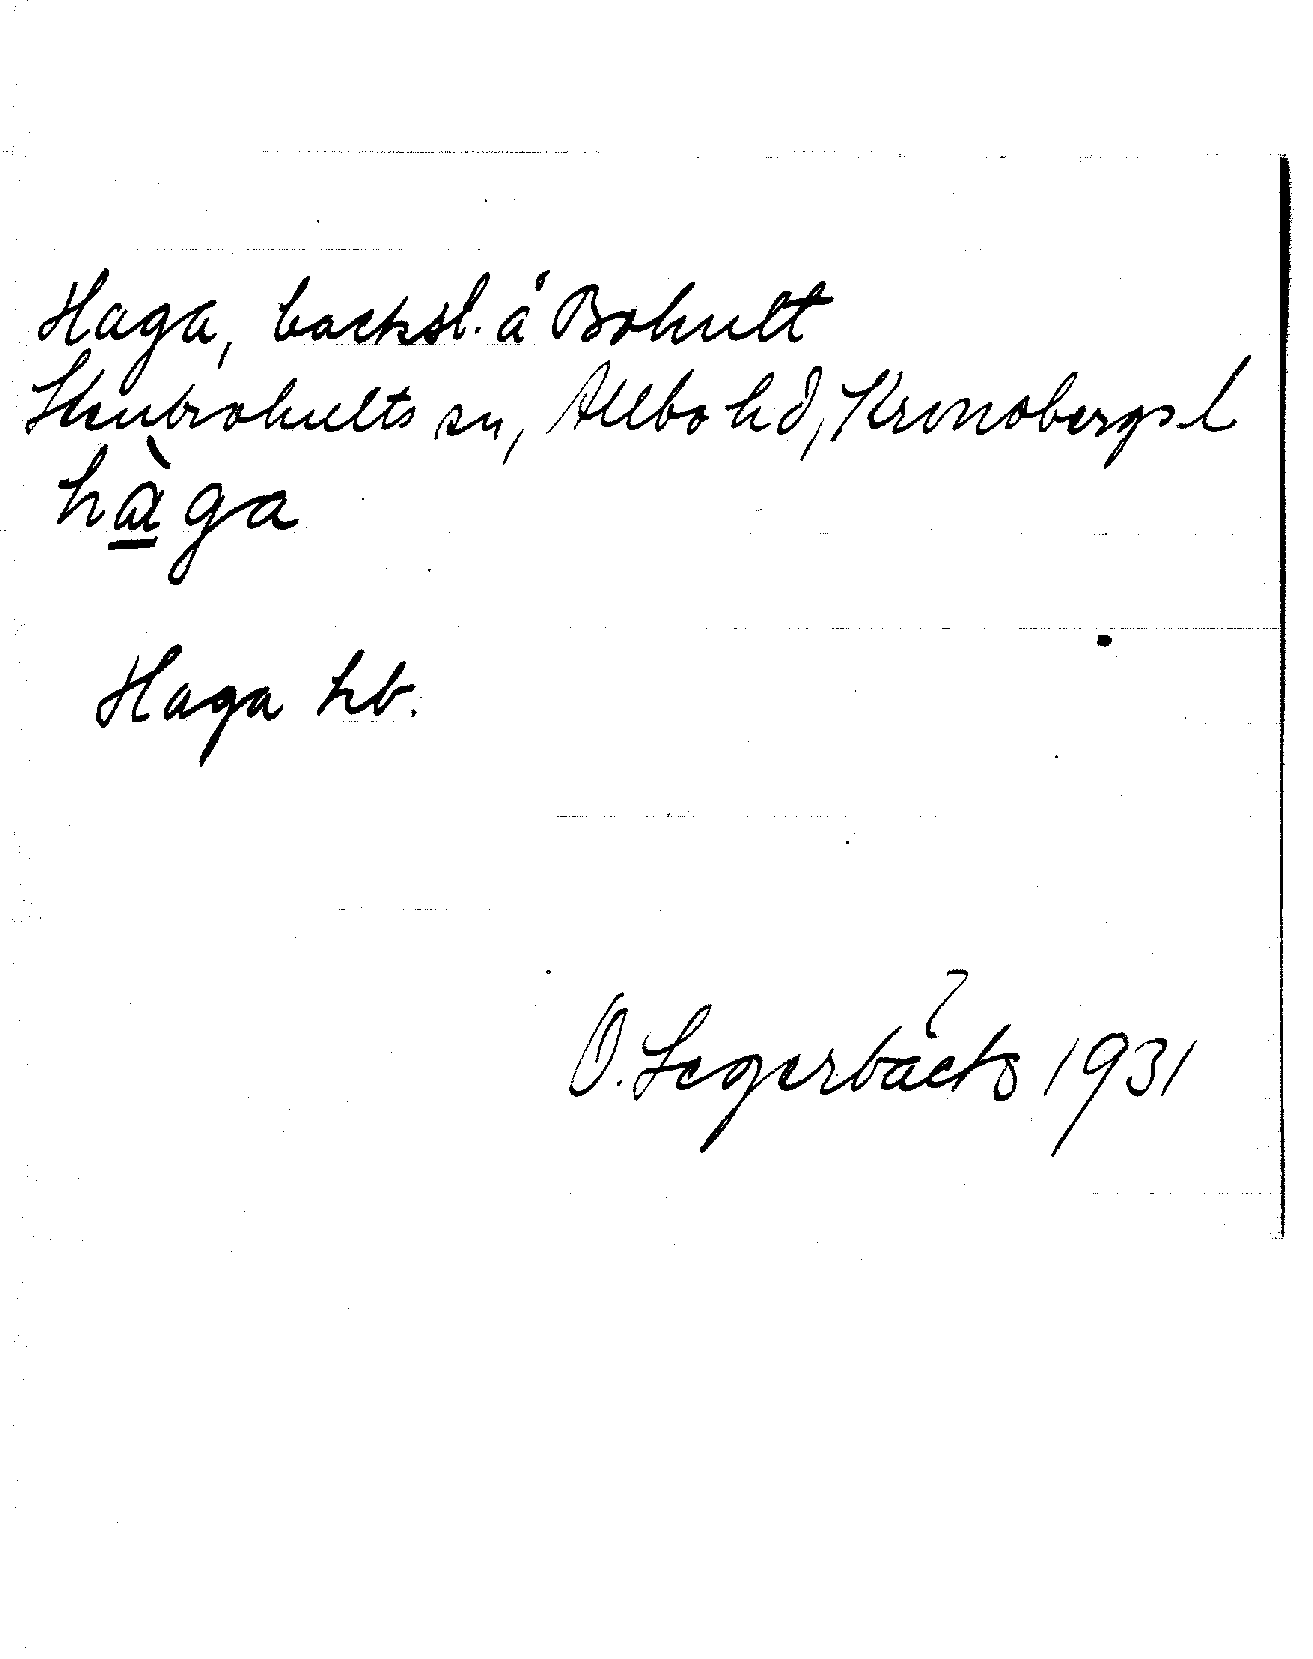 Haga, backsl. å Bohult
Stenbrohults sn, Allbo hd, Kronobergs l
hàga
Haga hb.
O. Segerbäck 1931